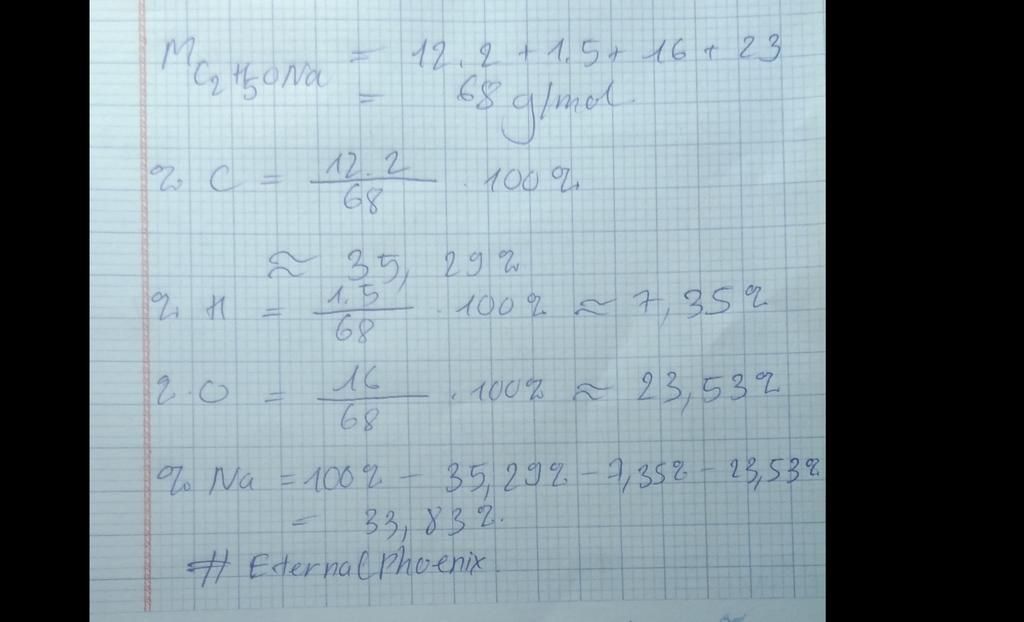 M C2H5ONa = 12.2 + 1.5 + 16 + 23
= 68 g/mol.
% C = 12.2 / 68 . 100%
≈ 35,29%
% H = 1.5 / 68 . 100% ≈ 7,35%
% O = 16 / 68 . 100% ≈ 23,53%
% Na = 100% - 35,29% - 7,35% - 23,53%
= 33,83%.
# EternalPhoenix.